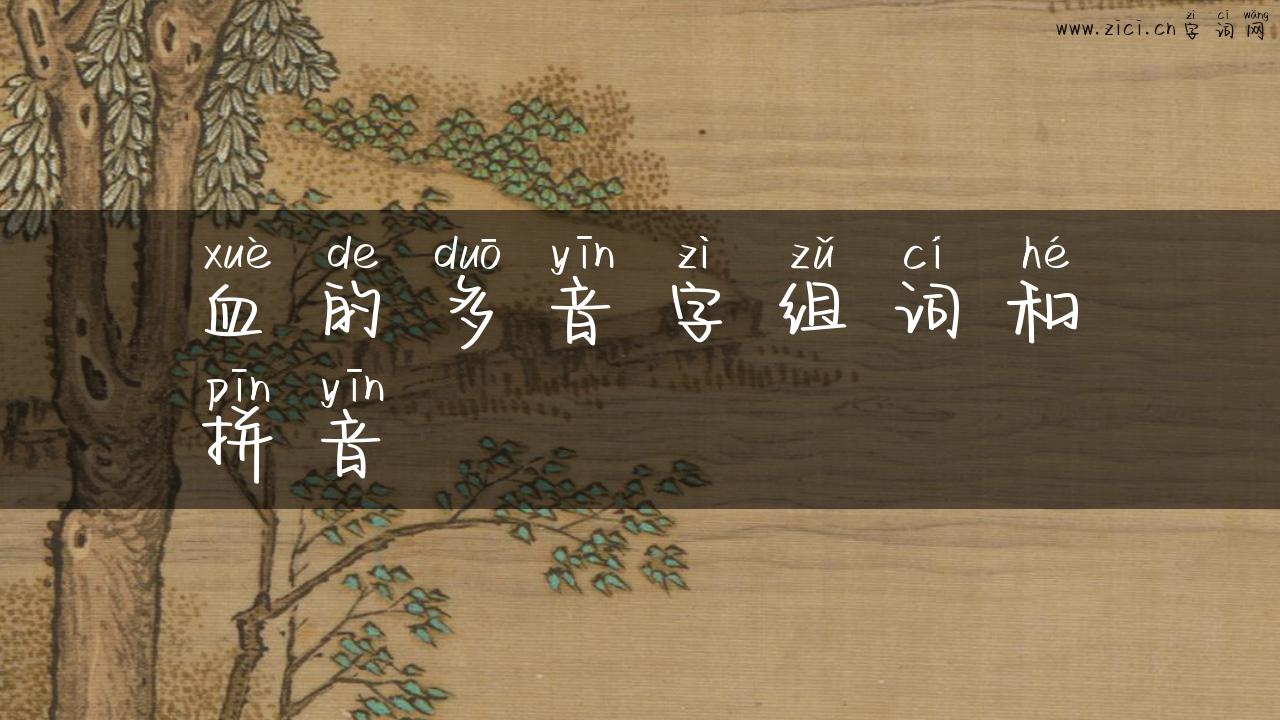 zì cí wǎng
www.zici.cn 字词网
xuè de duō yīn zì zǔ cí hé
血的多音字组词和
pīn yīn
拼音